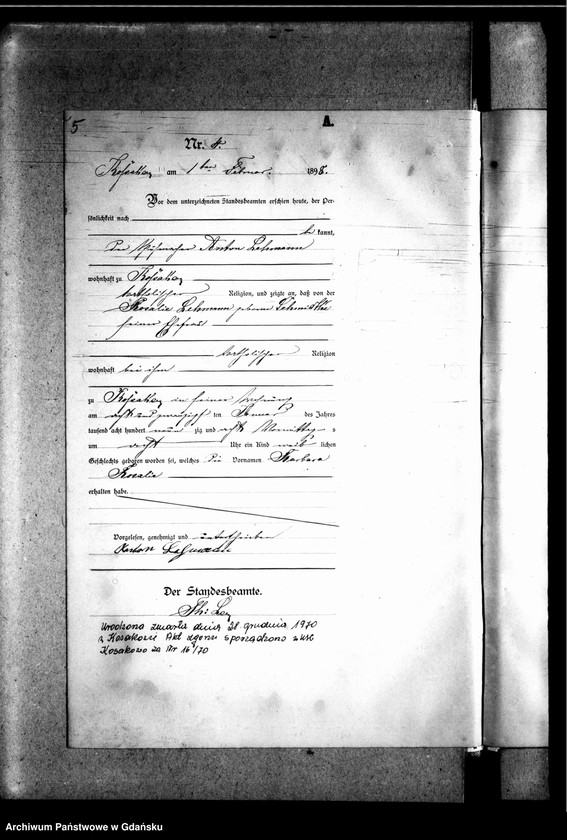 5
A.
Nr. 4.
am 1ten Februar 1898.
Vor dem unterzeichneten Standesbeamten erschien heute, der Per-
sönlichkeit nach
be kannt,
der Anton Lehmann
wohnhaft zu
katholischer Religion, und zeigte an, daß von der
Rosalie Lehmann geborene
seiner Ehefrau
katholischer Religion
wohnhaft bei ihm
zu in seiner Wohnung
am acht und zwanzigsten Januar des Jahres
tausend acht hundert neun zig und acht Vormittags
um acht Uhr ein Kind weib lichen
Geschlechts geboren worden sei, welches die Vornamen Barbara
Rosalie
erhalten habe.
Vorgelesen, genehmigt und unterschrieben
Anton Lehmann
Der Standesbeamte.
Urodzona zmarła dnia grudnia 1970
w Kosakowie Akt zgonu sporządzono w USC
Kosakowo za Nr 16/70
Archiwum Państwowe w Gdańsku